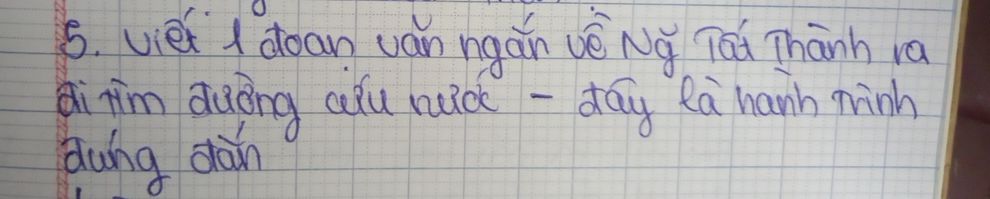 5. Viết 1 đoạn văn ngắn về Ng̃ Tất Thành ra
đi tìm đường cứu nước - đây là hành trình
đúng đắn